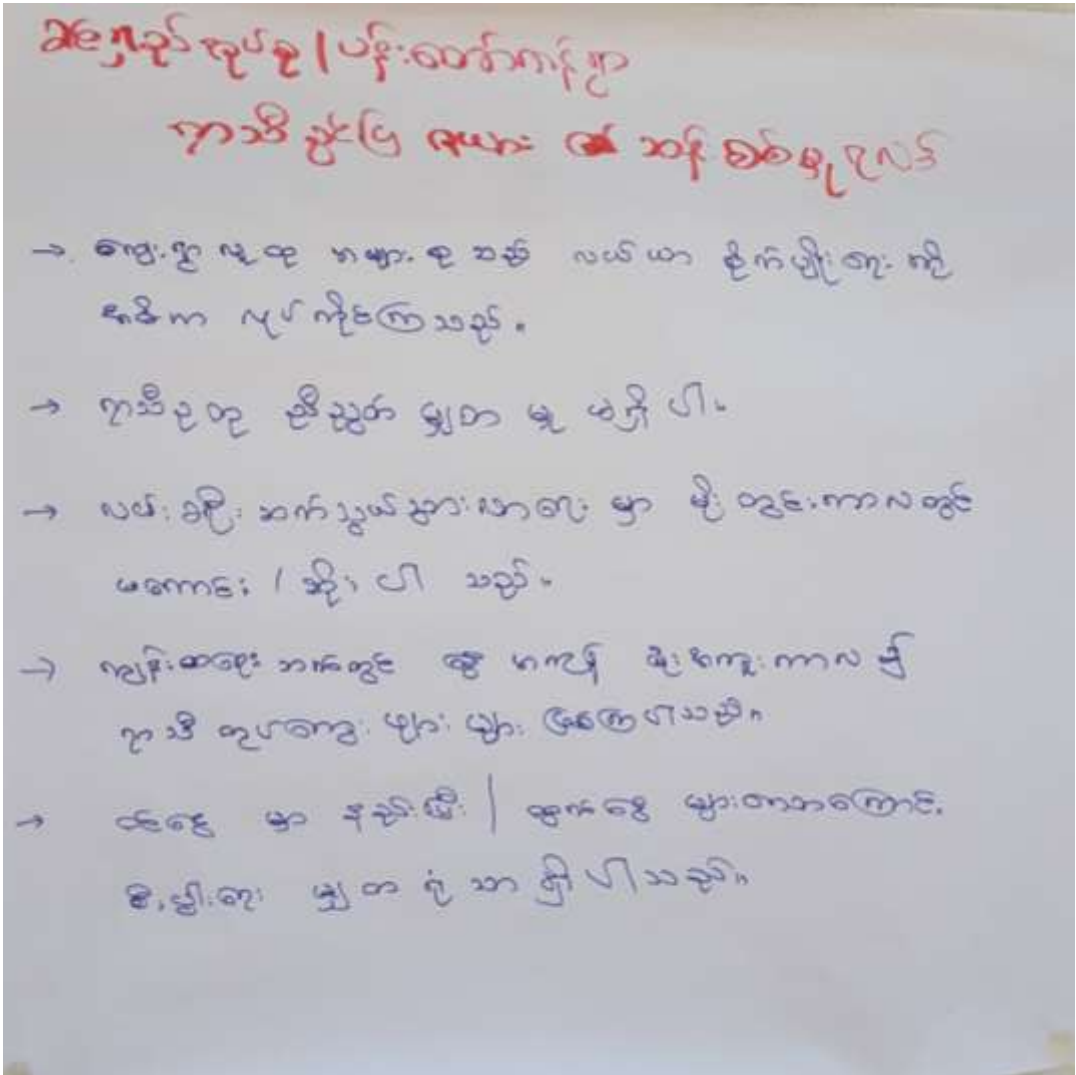 ခရေရှည်အုပ်စု / ပန်းတော်ကန်ရွာ
ရာသီခွင်ပြ ဇယား ဆန်းစစ်မှုရလဒ်
→ ကျေးရွာလူထု အများစုသည် လယ်ယာ စိုက်ပျိုးရေး ကို
အဓိက လုပ်ကိုင်ကြသည်။
→ ရာသီဥတု ညီညွတ် မျှတ မှု မရှိ ပါ။
→ လမ်းခရီး ဆက်သွယ်သွားလာရေး မှာ မိုးတွင်းကာလတွင်
မကောင်း / ဆိုး ပါ သည်။
→ ကျန်းမာရေး ဘက်တွင် နွေ အကုန် မိုးအကူးကာလ ၌
ရာသီ တုပ်ကွေး များ များ ဖြစ်ကြပါသည်။
→ ဝင်ငွေ မှာ နည်းပြီး / ထွက်ငွေ များတာကြောင့်
စီးပွါးရေး မျှတ ရုံ သာ ရှိ ပါသည်။